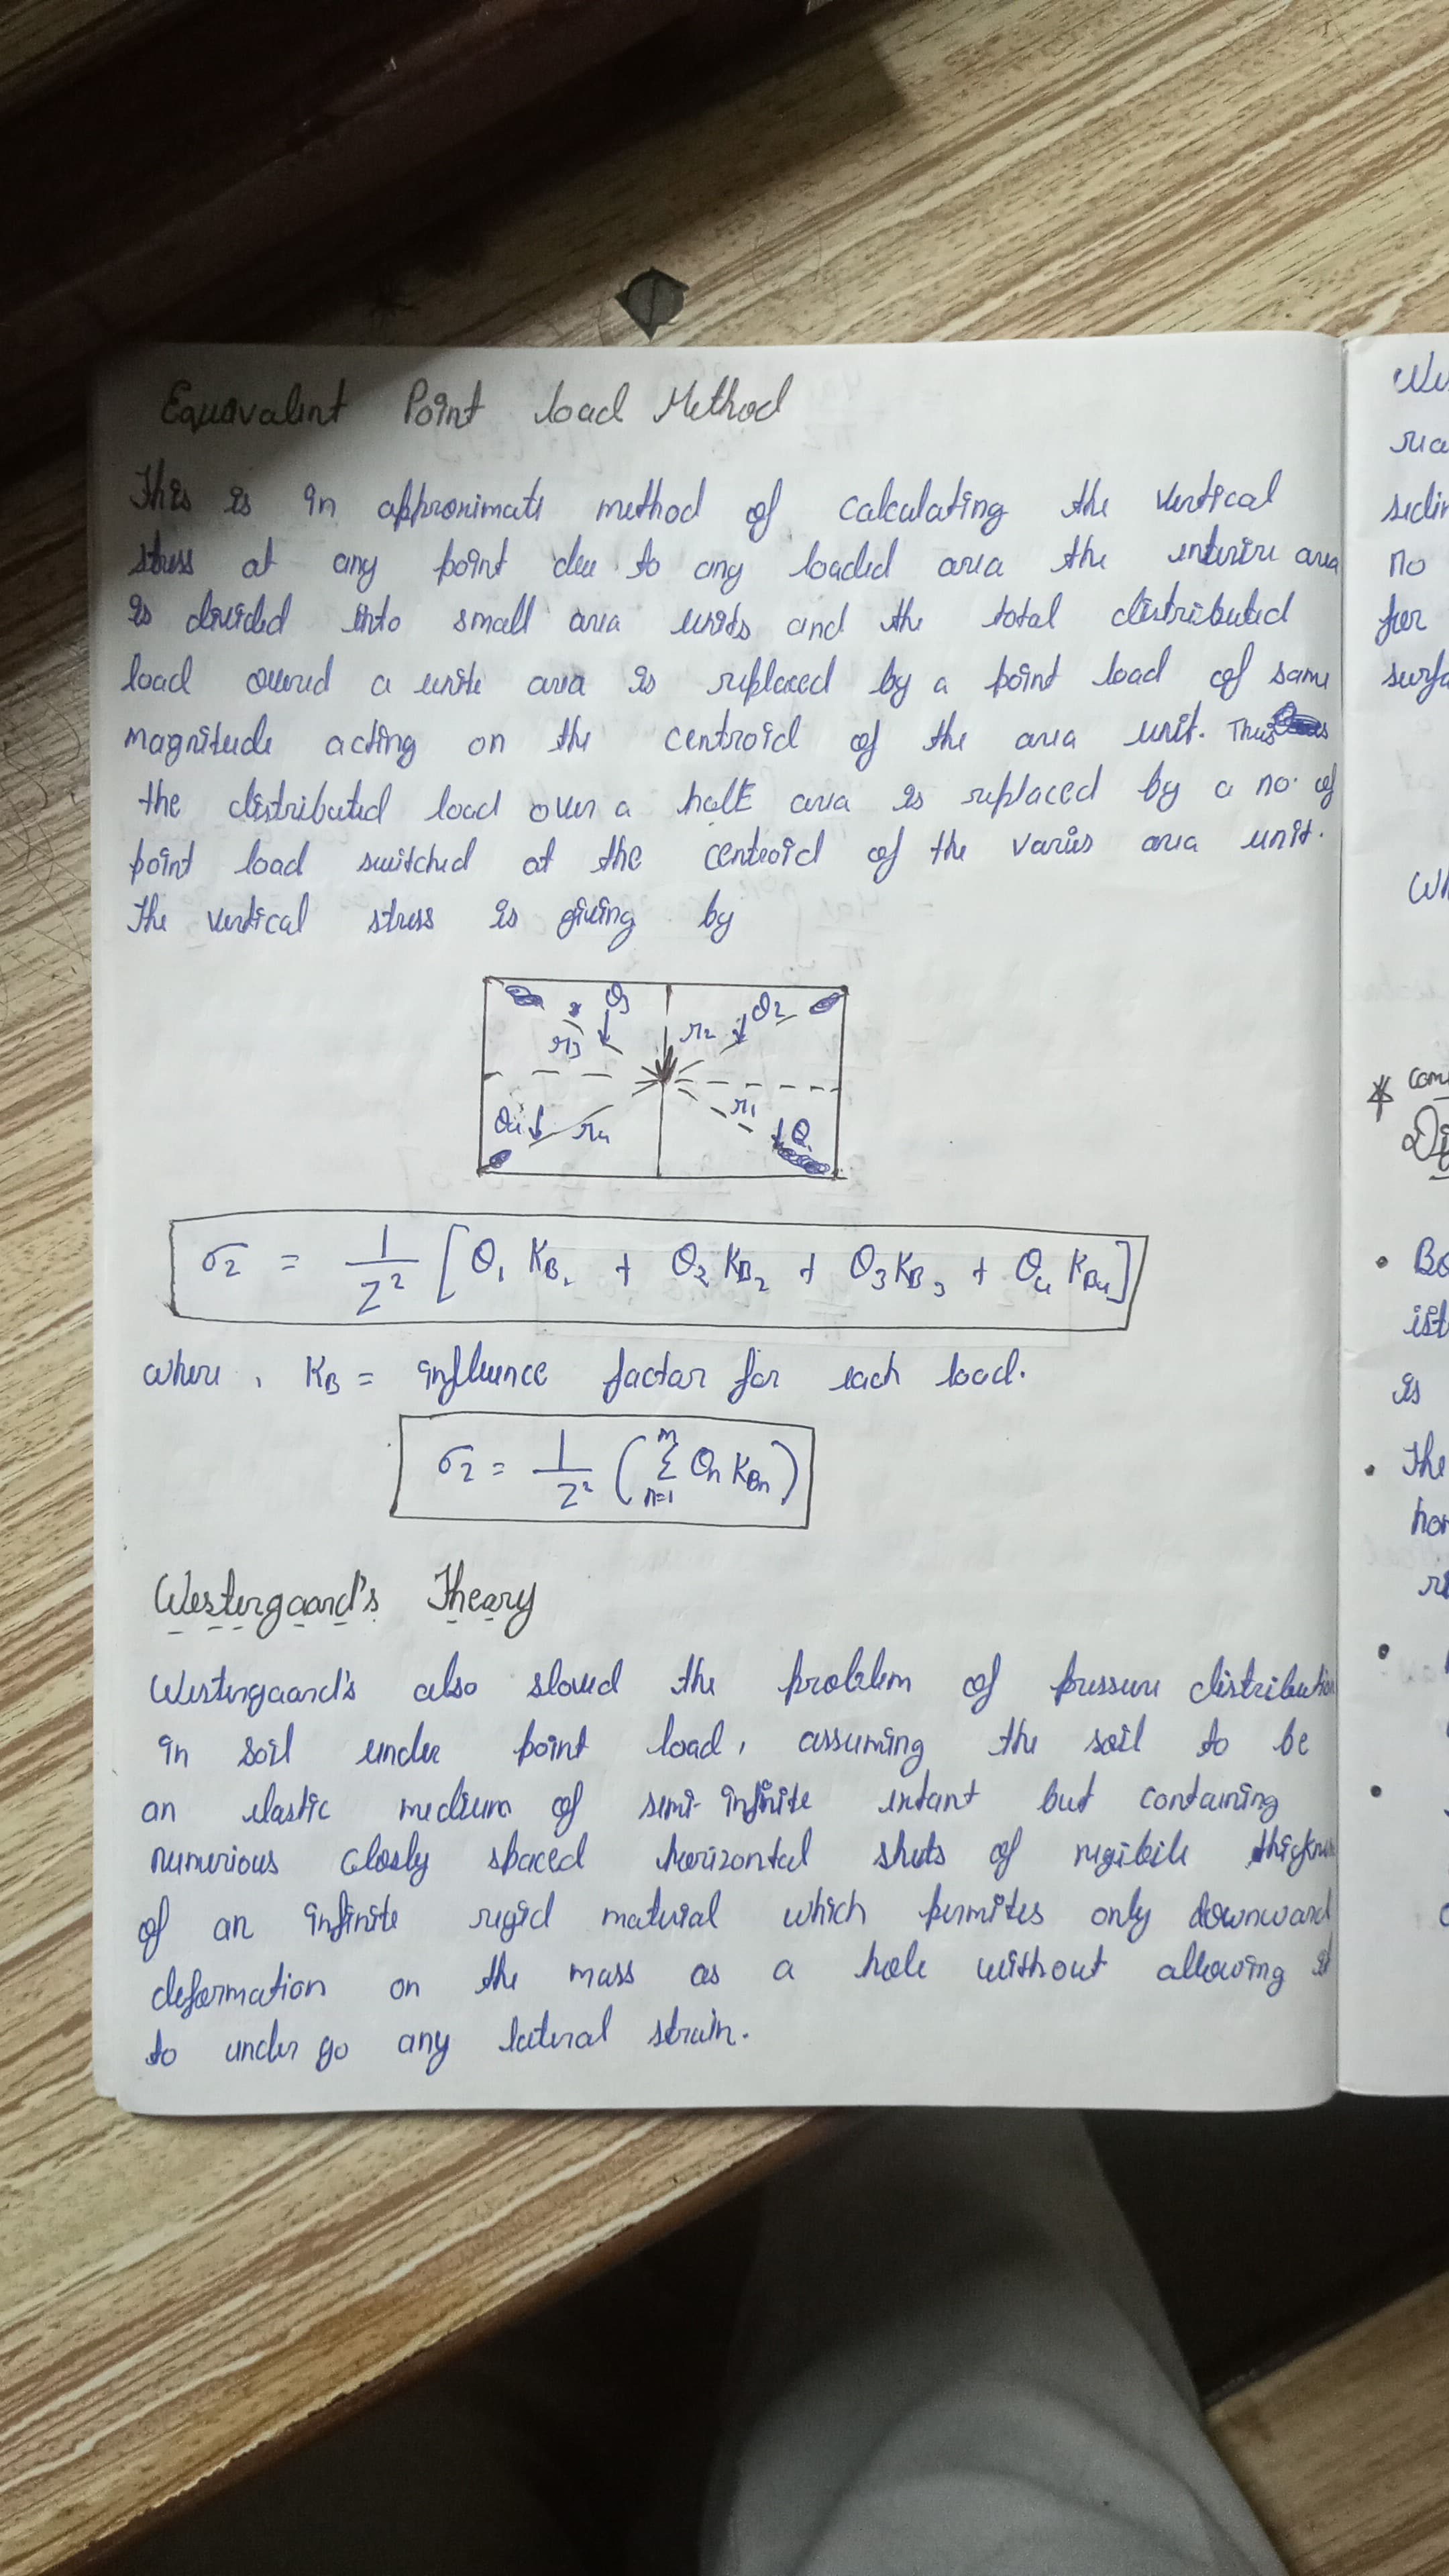 Equivalent Point load Method
This is in approximate method of calculating the vertical
stress at any point due to any loaded area the enterire area
is divided into small area units and the total distributed
load overed a unite area is replaced by a point load of same
magnitude acting on the centroid of the area unit. Thus
the distributed load over a halt area is replaced by a no. of
point load switched at the centroid of the varius area unit.
The vertical stress is giving by
Q3 r2 Q2
r3
Q4 r4 r1 Q1
σz = 1/Z² [Q1 KB1 + Q2 KB2 + Q3 KB3 + Q4 KB4]
where, KB = influence factor for each load.
σz = 1/Z² (Σ n=1 n Qn KBn)
Westergaard's Theory
Westergaard's also sloved the problem of pressure distribution
in soil under point load, assuming the soil to be
an elastic medium of semi-infinite extant but contauning
numerious closly spaced horizontal shets of negibile thickness
of an infinite rigid material which permites only downward
deformation on the mass as a hole without allowing it
to under go any lateral strain.
no
for
* Com
• Bo
is
• The